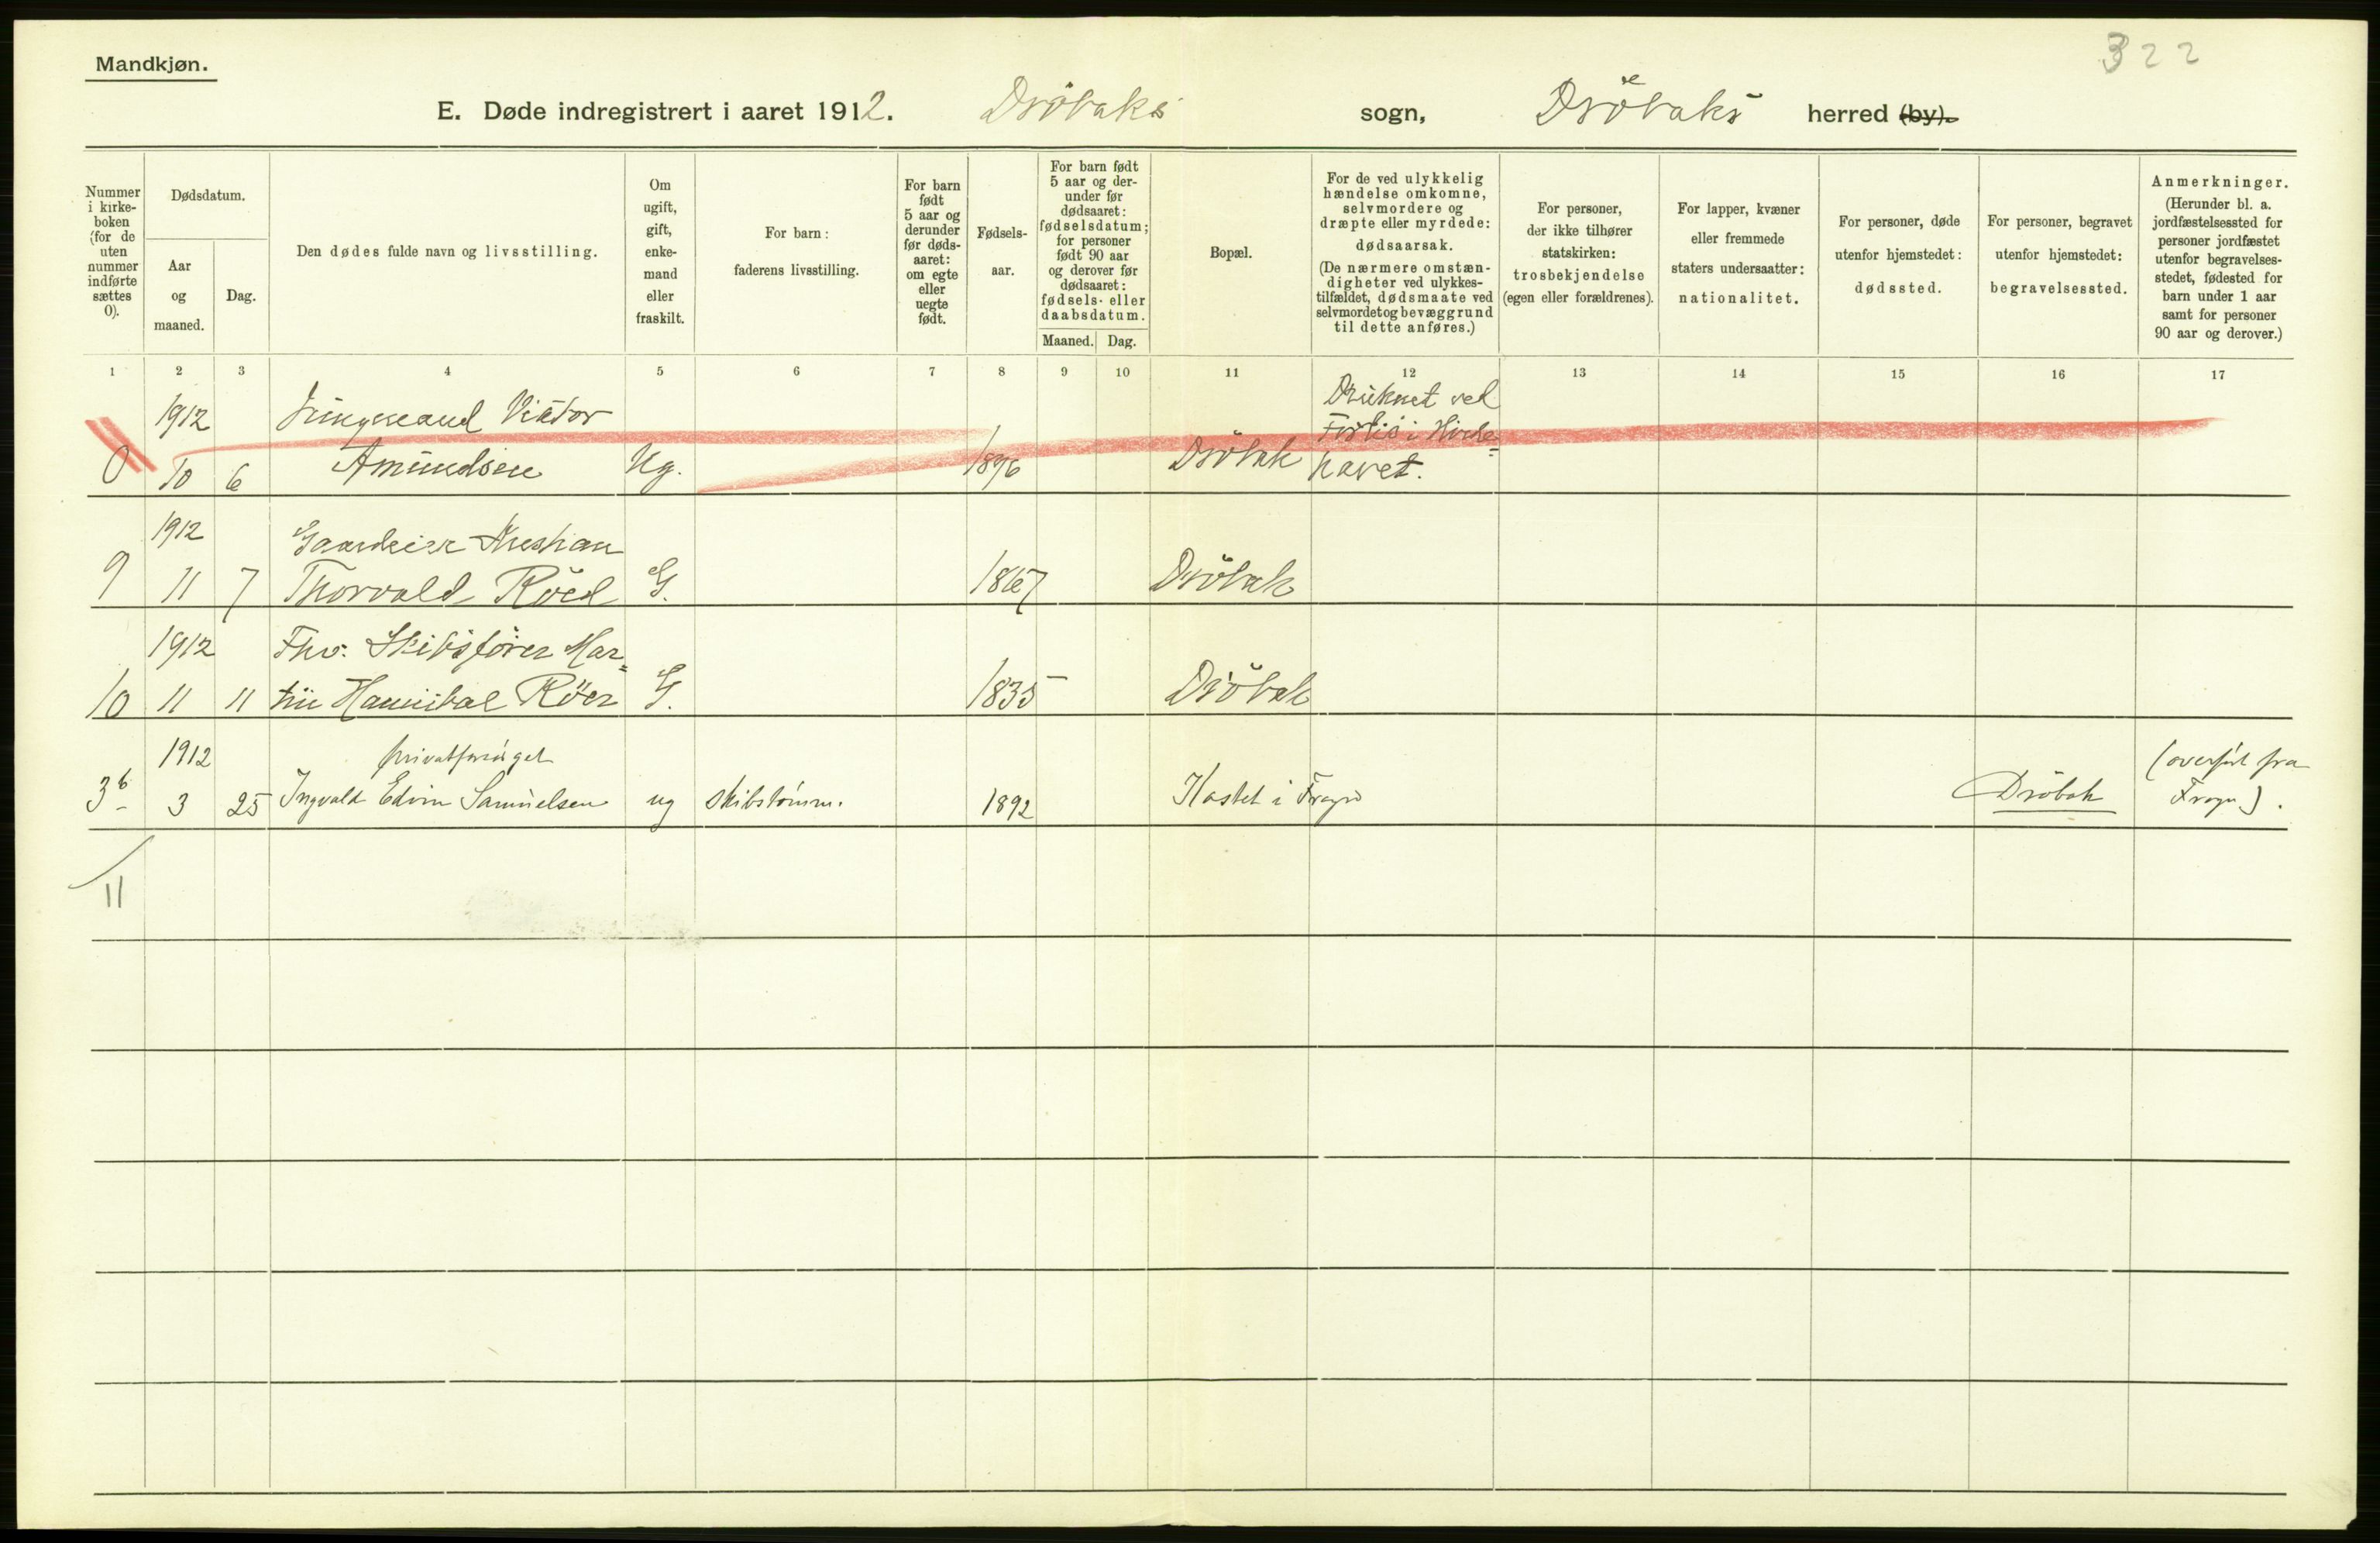 Mandkjøn.
322
E. Døde indregistrert i aaret 1912. Drøbaks sogn, Drøbaks herred (by).
Nummer i kirkeboken (for de uten nummer indførte sættes 0).
Dødsdatum.
Aar og maaned.
Dag.
Den dødes fulde navn og livsstilling.
Om ugift, gift, enkemand eller fraskilt.
For barn: faderens livsstilling.
For barn født 5 aar og derunder før dødsaaret: om egte eller uegte født.
Fødselsaar.
For barn født 5 aar og derunder før dødsaaret: fødselsdatum; for personer født 90 aar og derover før dødsaaret: fødsels- eller daabsdatum.
Maaned. Dag.
Bopæl.
For de ved ulykkelig hændelse omkomne, selvmordere og dræpte eller myrdede: dødsaarsak. (De nærmere omstændigheter ved ulykkestilfældet, dødsmaate ved selvmordet og bevæggrund til dette anføres.)
For personer, der ikke tilhører statskirken: trosbekjendelse (egen eller forældrenes).
For lapper, kvæner eller fremmede staters undersaatter: nationalitet.
For personer, døde utenfor hjemstedet: dødssted.
For personer, begravet utenfor hjemstedet: begravelsessted.
Anmerkninger. (Herunder bl. a. jordfæstelsessted for personer jordfæstet utenfor begravelsesstedet, fødested for barn under 1 aar samt for personer 90 aar og derover.)
1 2 3 4 5 6 7 8 9 10 11 12 13 14 15 16 17
1912 Jungmand Viktor Druknet ved
Forlis i Hvide=
0 10 6 Amundsen Ug. 1896 Drøbak havet.
1912 Gaardeier Kristian
9 11 7 Thorvald Röed G. 1867 Drøbak
1912 Fhv. Skibsfører Mar=
10 11 11 tin Hannibal Röer G. 1835 Drøbak
1912 privatforsørget (overført fra
3b 3 25 Ingvald Edvin Samuelsen ug skibstømm. 1892 Kastet i Frogn Drøbak Frogn).
11